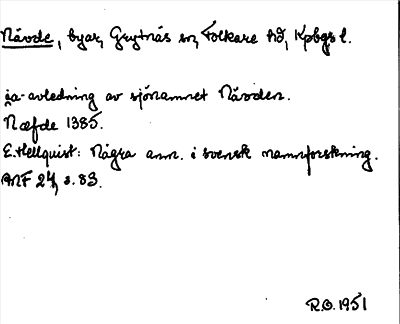 Nävde, byar, Grytnäs sn, Folkare hd, Kpbgs l.
ia-avledning av sjönamnet Nävden.
Næfde 1385.
E. Hellquist: Några anm. i svensk namnforskning.
ANF 24, s. 83.
R.O. 1951